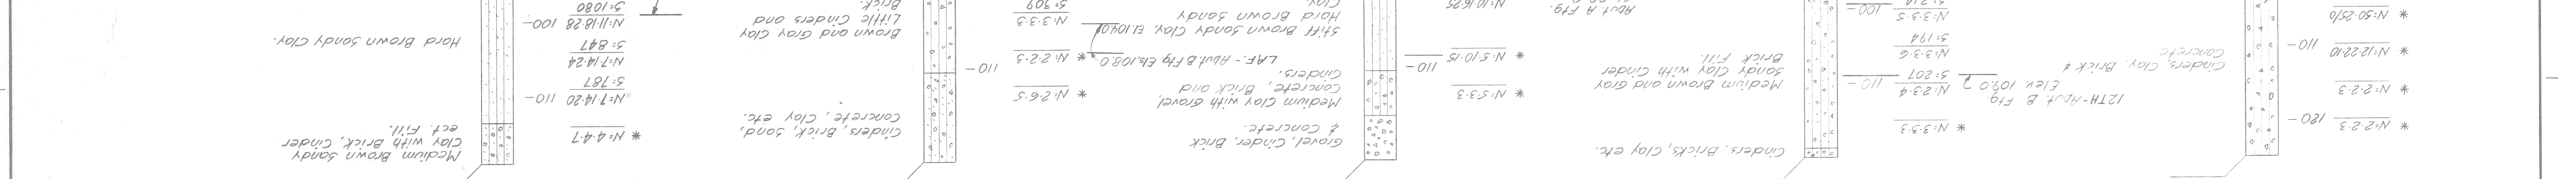 * N=2-2-3
120 –
* N=2-2-3
* N=12-22-10
110 –
* N=50-25/0
Cinders, Clay, Brick &
Concrete
* N=3-3-3
12TH - Abut. B Ftg.
Elev. 109.0
N=2-3-4
110 –
S=207
N=3-3-6
S=194
N=3-3-5
100 –
Cinders, Bricks, Clay etc.
Medium Brown and Gray
Sandy Clay with Cinder
Brick Fill.
* N=5-3-3
* N=5-10-15
110 –
Abut. A Ftg.
N=10-16-25
Gravel, Cinder, Brick
& Concrete.
Medium Clay with Gravel,
Concrete, Brick and
Cinders.
LAF. - Abut. B Ftg Els. 108.0
Stiff Brown Sandy Clay, El. 104.0
Hard Brown Sandy
Clay.
* N=2-6-5
* N=2-2-3
110 –
N=3-3-3
S=309
Cinders, Brick, Sand,
Concrete, Clay etc.
Brown and Gray Clay
Little Cinders and
Brick.
* N=4-4-7
N=7-14-20
110 –
S=787
N=7-14-24
S=847
N=11-18-28
100 –
S=1080
Medium Brown Sandy
Clay with Brick, Cinder
ect. Fill.
Hard Brown Sandy Clay.